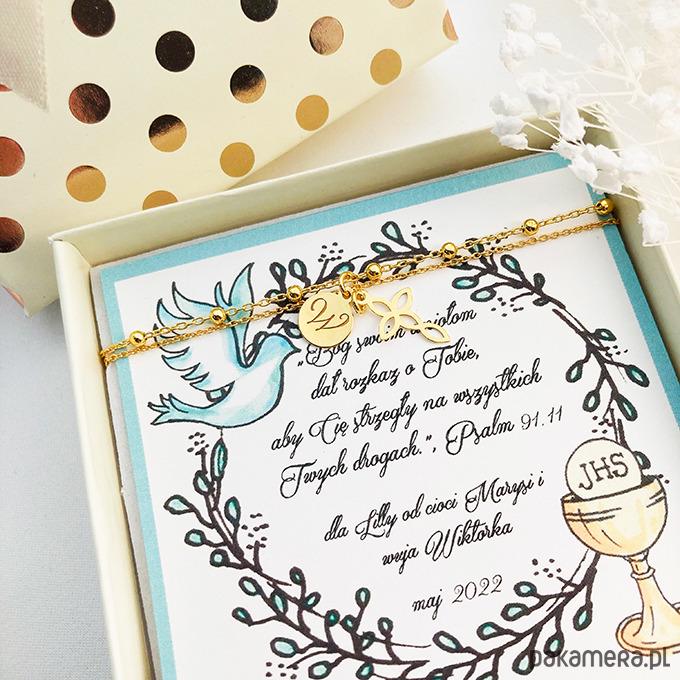 "Bóg swoim aniołom
dał rozkaz o Tobie,
aby Cię strzegły na wszystkich
Twych drogach.", Psalm 91.11
dla Lilly od cioci Marysi i
wuja Wiktorka
maj 2022
JHS
pakamera.pl